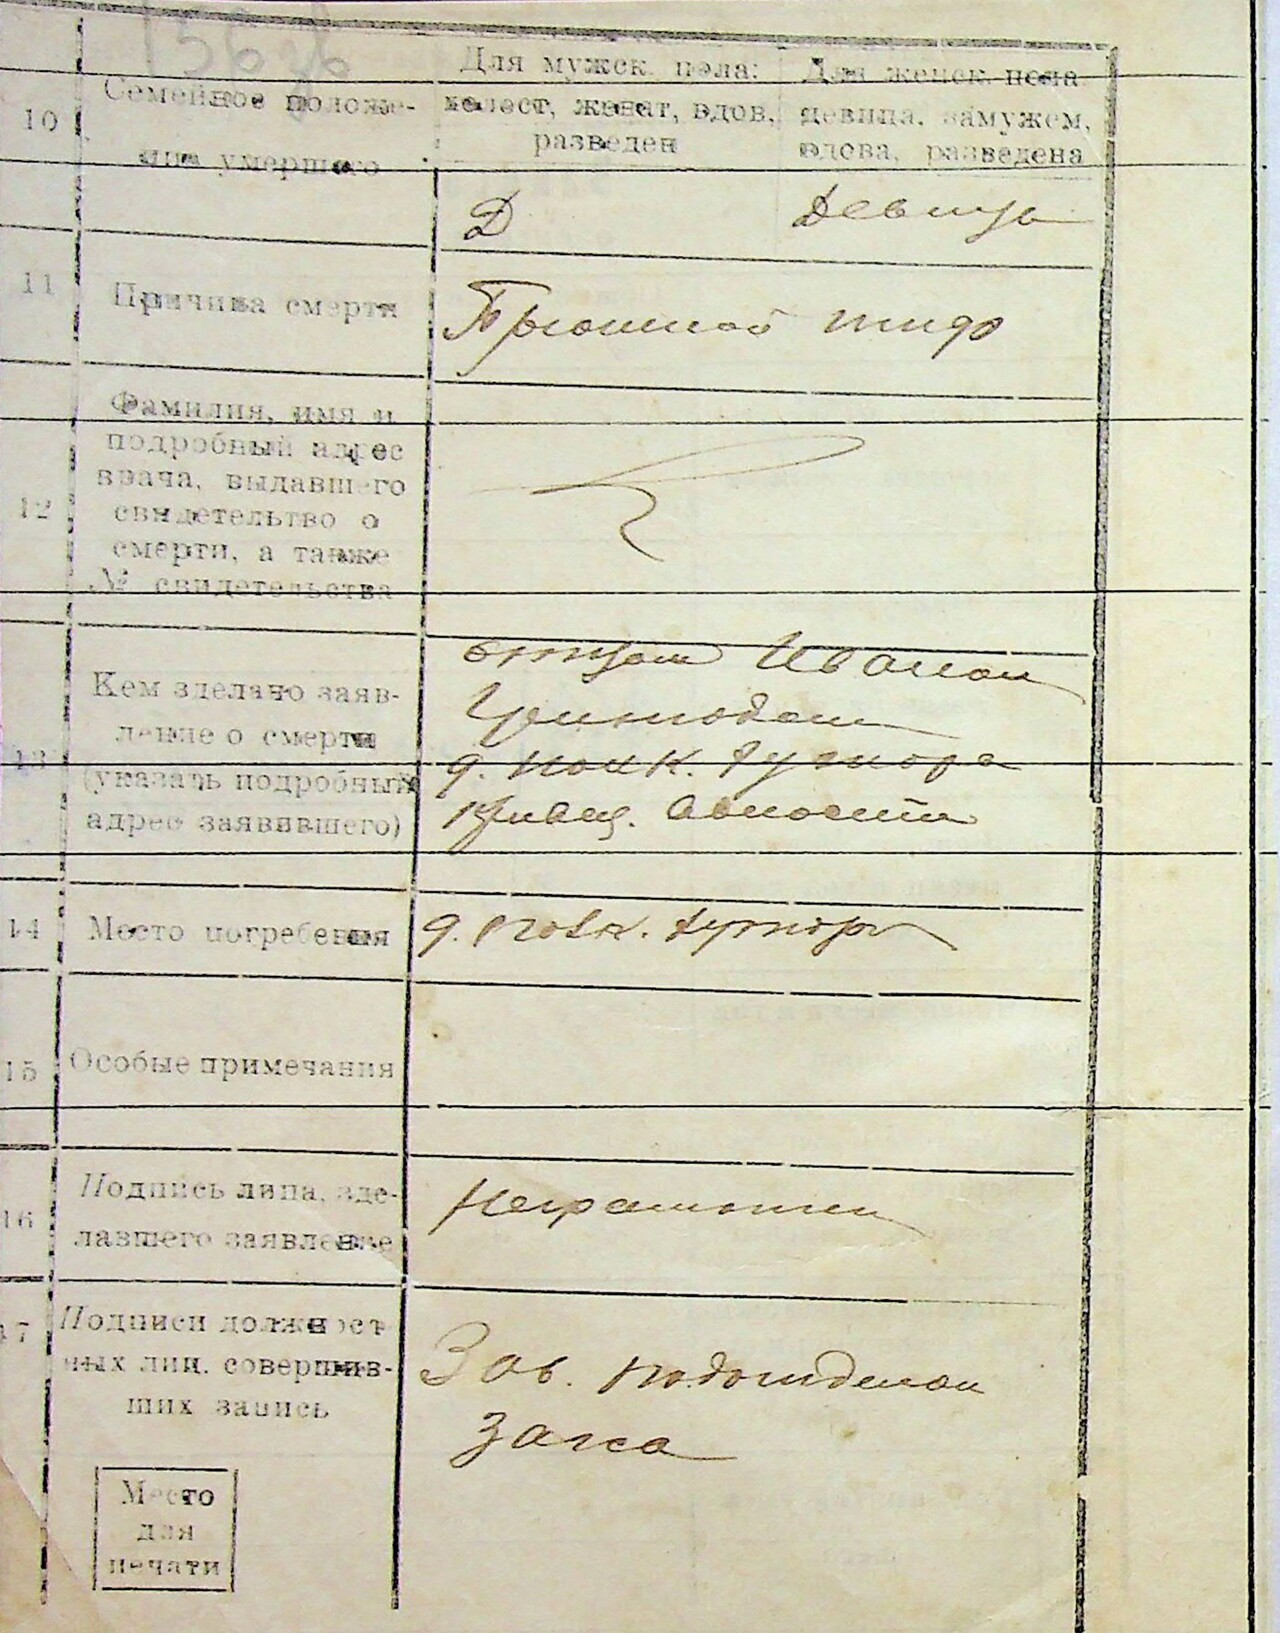 10
Семейное положе-
ния умершего
Для мужск. пола:
холост, женат, вдов,
разведен
Для женск. пола
девица, замужем,
вдова, разведена
Д
Девица
11
Причина смерти
Брюшной тиф
12
Фамилия, имя и
подробный адрес
врача, выдавшего
свидетельство о
смерти, а также
№ свидетельства
13
Кем зделано заяв-
ление о смерти
(указать подробный
адрес заявившего)
отцом Иваном
д. Хутора
волости
14
Место погребения
д. Хутора
15
Особые примечания
16
Подпись лица, зде-
лавшего заявление
Неграмотен
17
Подписи должност
ных лиц, совершив-
ших запись
Зав. подотделом
Загса
Место
для
печати